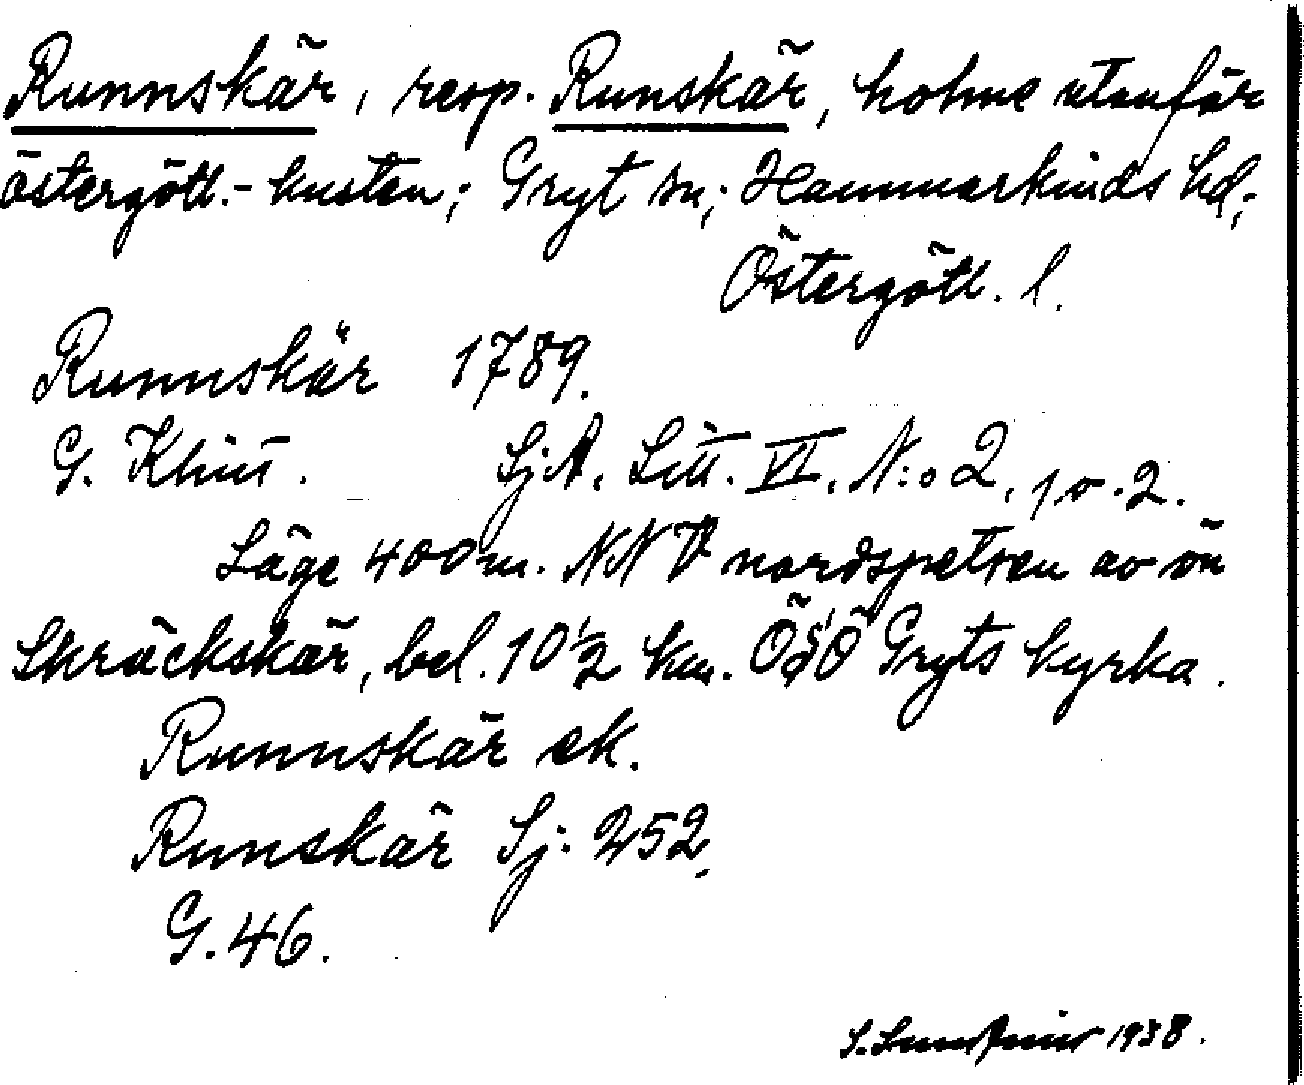 Runnskär, resp. Runskär, holme utanför
östergötl.-kusten; Gryt sn; Hammarkinds hd;
Östergötl. l.
Runnskär 1789.
G. Klint. SjA. Litt. VI. N:o 2, 1 o. 2.
Läge 400 m. NNV nordspetsen av ön
Skräckskär, bel. 10 1/2 km. ÖSÖ Gryts kyrka.
Runnskär ek.
Runskär Sj. 252.
G. 46.
S. 1938.